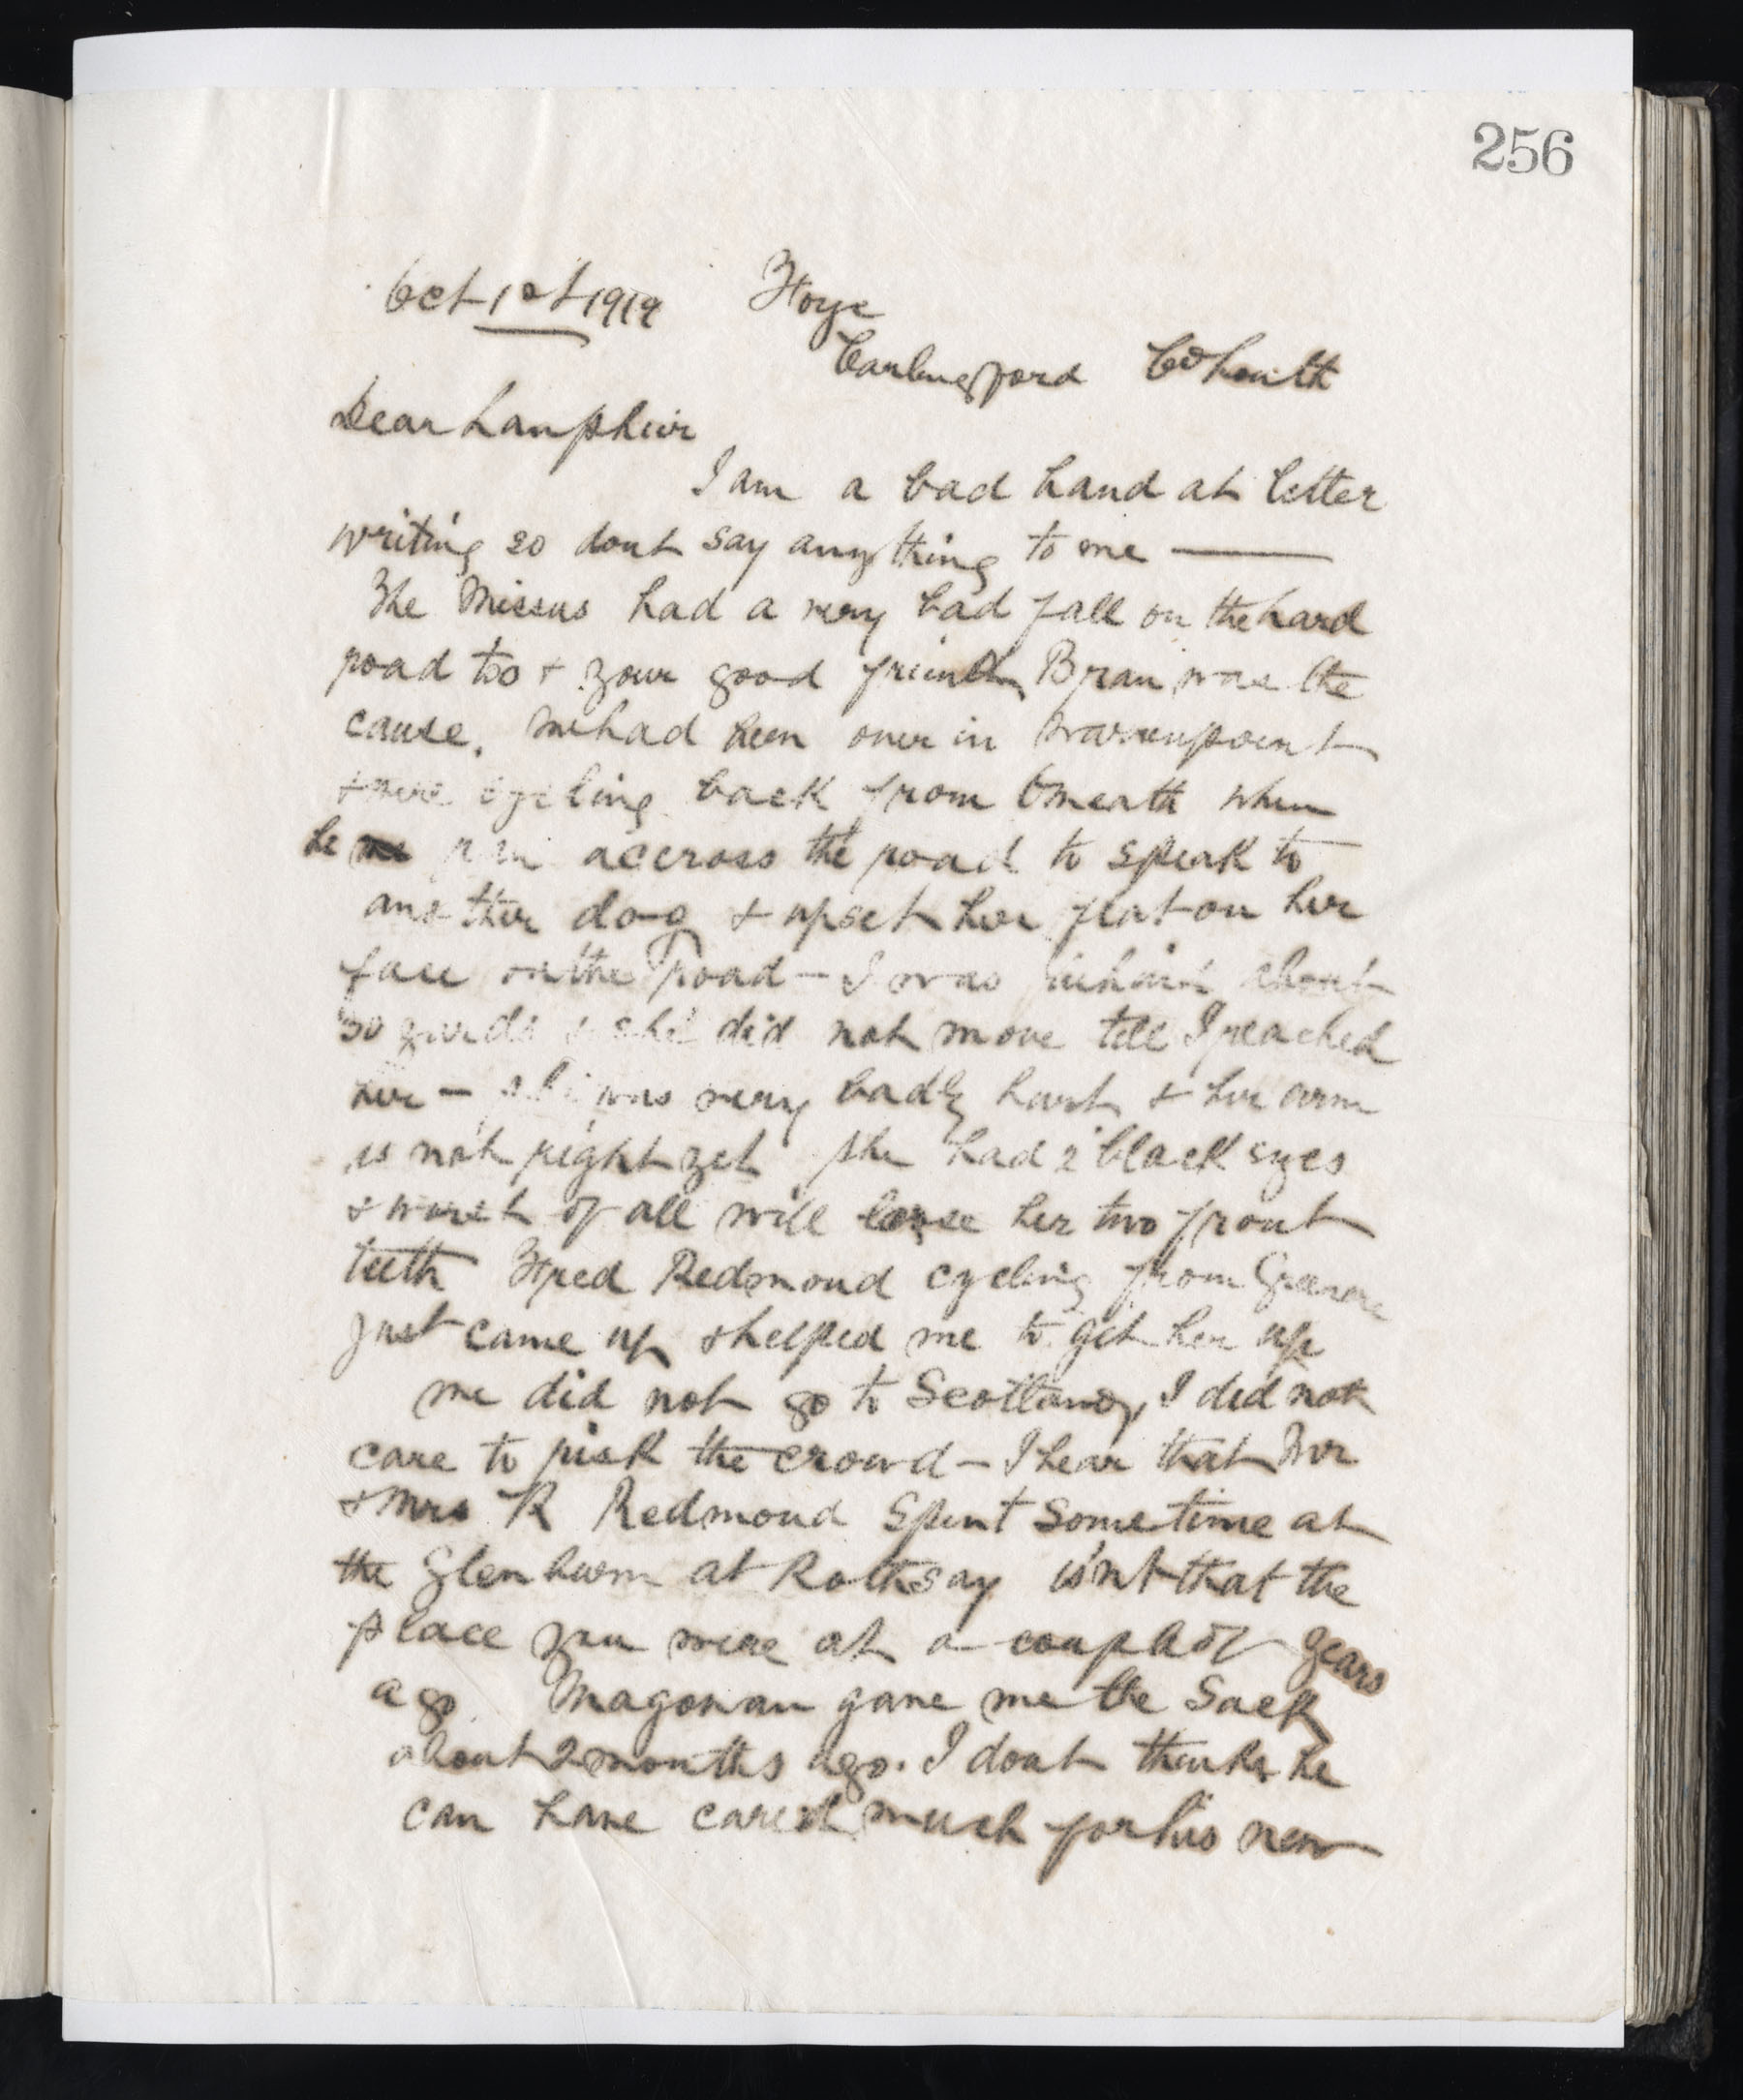 256
Oct 1st 1919 Foye
Carlingford Co Louth
Dear Lamphier
I am a bad hand at letter
writing so dont say anything to me —
The Missus had a very bad fall on the hard
road too & your good friend Bran was the
cause. We had been over in Warrenpoint
& were cycling back from Omeath when
he ran accross the road to speak to
another dog & upset her flat on her
face on the road — I was behind about
30 yards & she did not move till I reached
her — she was very badly hurt & her arm
is not right yet she had 2 black eyes
& worst of all will loose her two front
teeth Fred Redmond cycling from Greenore
just came up & helped me to get her up
We did not go to Scotland, I did not
care to risk the crowd — I hear that Mr
& Mrs R Redmond Spent Sometime at
the Glenburn at Rothsay is'nt that the
place you were at a couple of years
ago. Magowan gave me the Sack
about 2 months ago. I dont think he
can have cared much for his new